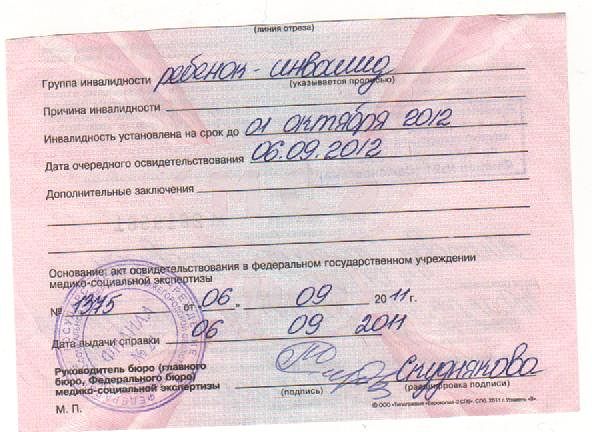 (линия отреза)
Группа инвалидности ребенок-инвалид
(указывается прописью)
Причина инвалидности
Инвалидность установлена на срок до 01 октября 2012
Дата очередного освидетельствования 06.09.2012
Дополнительные заключения
Основание: акт освидетельствования в федеральном государственном учреждении
медико-социальной экспертизы
№ 1375 от "06" 09 2011 г.
Дата выдачи справки 06 09 2011
Руководитель бюро (главного
бюро, Федерального бюро)
медико-социальной экспертизы Скуднякова
(подпись) (расшифровка подписи)
М. П.
ФИЛИАЛ
№